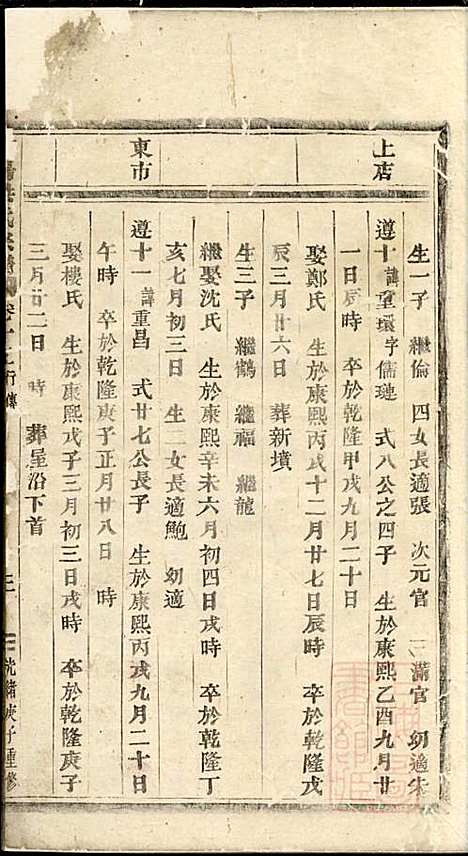 上店
東市
生一子 繼倫 四女長適張 次元官 三滿官 幼適朱
遵十諱重環字儒璉 式八公之四子 生於康熙乙酉九月廿
一日辰時 卒於乾隆甲戌九月二十日
娶鄭氏 生於康熙丙戌十二月廿七日辰時 卒於乾隆戊
辰三月廿六日 葬新墳
生三子 繼鶴 繼福 繼龍
繼娶沈氏 生於康熙辛未六月初四日戌時 卒於乾隆丁
亥七月初三日 生二女長適鮑 幼適
遵十一諱重昌 式廿七公長子 生於康熙丙戌九月二十日
午時 卒於乾隆庚子正月廿八日 時
娶樓氏 生於康熙戊子三月初三日戌時 卒於乾隆庚子
三月廿二日 時 葬屋沿下首
行傳
光緒庚子重修